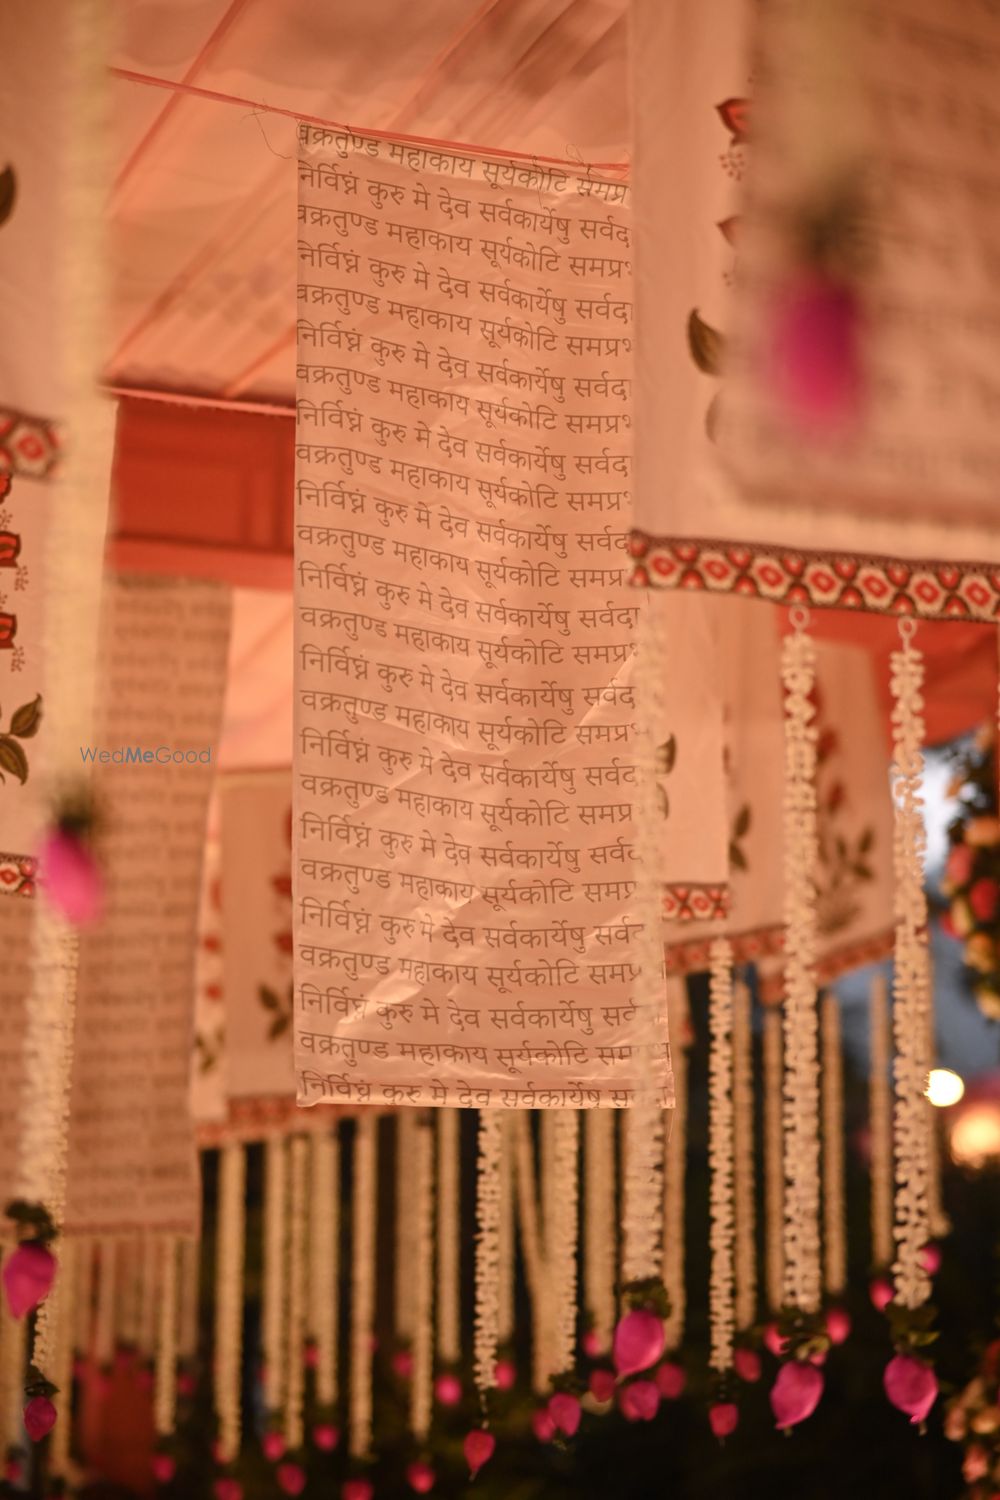 वक्रतुण्ड महाकाय सूर्यकोटि समप्र
निर्विघ्नं कुरु मे देव सर्वकार्येषु सर्वद
वक्रतुण्ड महाकाय सूर्यकोटि समप्रभ
निर्विघ्नं कुरु मे देव सर्वकार्येषु सर्वदा
वक्रतुण्ड महाकाय सूर्यकोटि समप्रभ
निर्विघ्नं कुरु मे देव सर्वकार्येषु सर्वदा
वक्रतुण्ड महाकाय सूर्यकोटि समप्रभ
निर्विघ्नं कुरु मे देव सर्वकार्येषु सर्वदा
वक्रतुण्ड महाकाय सूर्यकोटि समप्रभ
निर्विघ्नं कुरु मे देव सर्वकार्येषु सर्वद
वक्रतुण्ड महाकाय सूर्यकोटि समप्र
निर्विघ्नं कुरु मे देव सर्वकार्येषु सर्वदा
वक्रतुण्ड महाकाय सूर्यकोटि समप्रभ
निर्विघ्नं कुरु मे देव सर्वकार्येषु सर्वद
वक्रतुण्ड महाकाय सूर्यकोटि समप्रभ
निर्विघ्नं कुरु मे देव सर्वकार्येषु सर्वद
वक्रतुण्ड महाकाय सूर्यकोटि समप्र
निर्विघ्नं कुरु मे देव सर्वकार्येषु सर्वद
वक्रतुण्ड महाकाय सूर्यकोटि समप्र
निर्विघ्नं कुरु मे देव सर्वकार्येषु सर्व
वक्रतुण्ड महाकाय सूर्यकोटि समप्र
निर्विघ्नं कुरु मे देव सर्वकार्येषु सर्व
वक्रतुण्ड महाकाय सूर्यकोटि सम
निर्विघ्नं कुरु मे देव सर्वकार्येषु स
WedMeGood